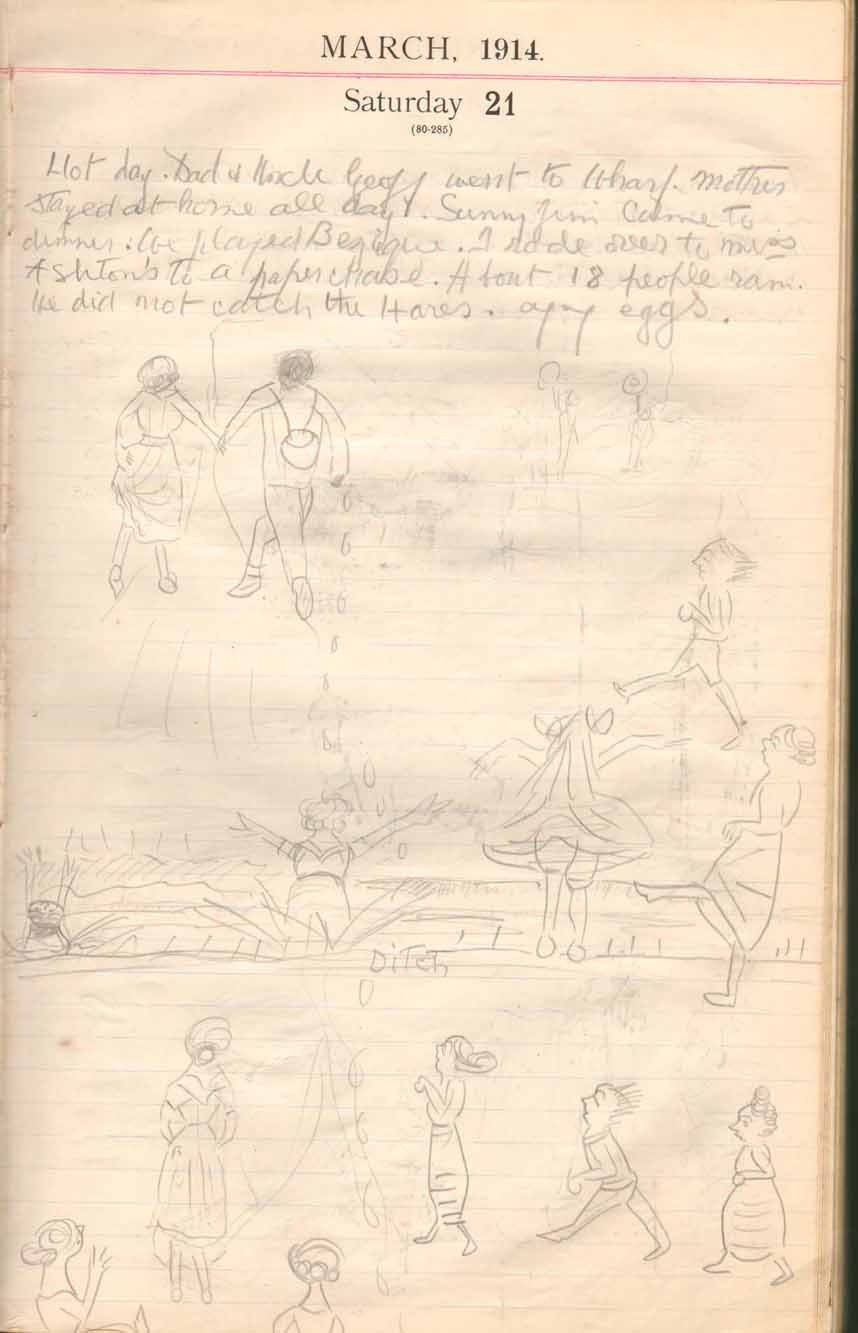 MARCH, 1914.
Saturday 21
(80-285)
Hot day. Dad & Uncle Geoff went to Wharf. Mother
stayed at home all day. Sunny Jim Came to
dinner. We played Bezique. I rode over to
Ashton's to a paperchase. About 18 people ran.
We did not catch the Hares. eggs.
Ditch